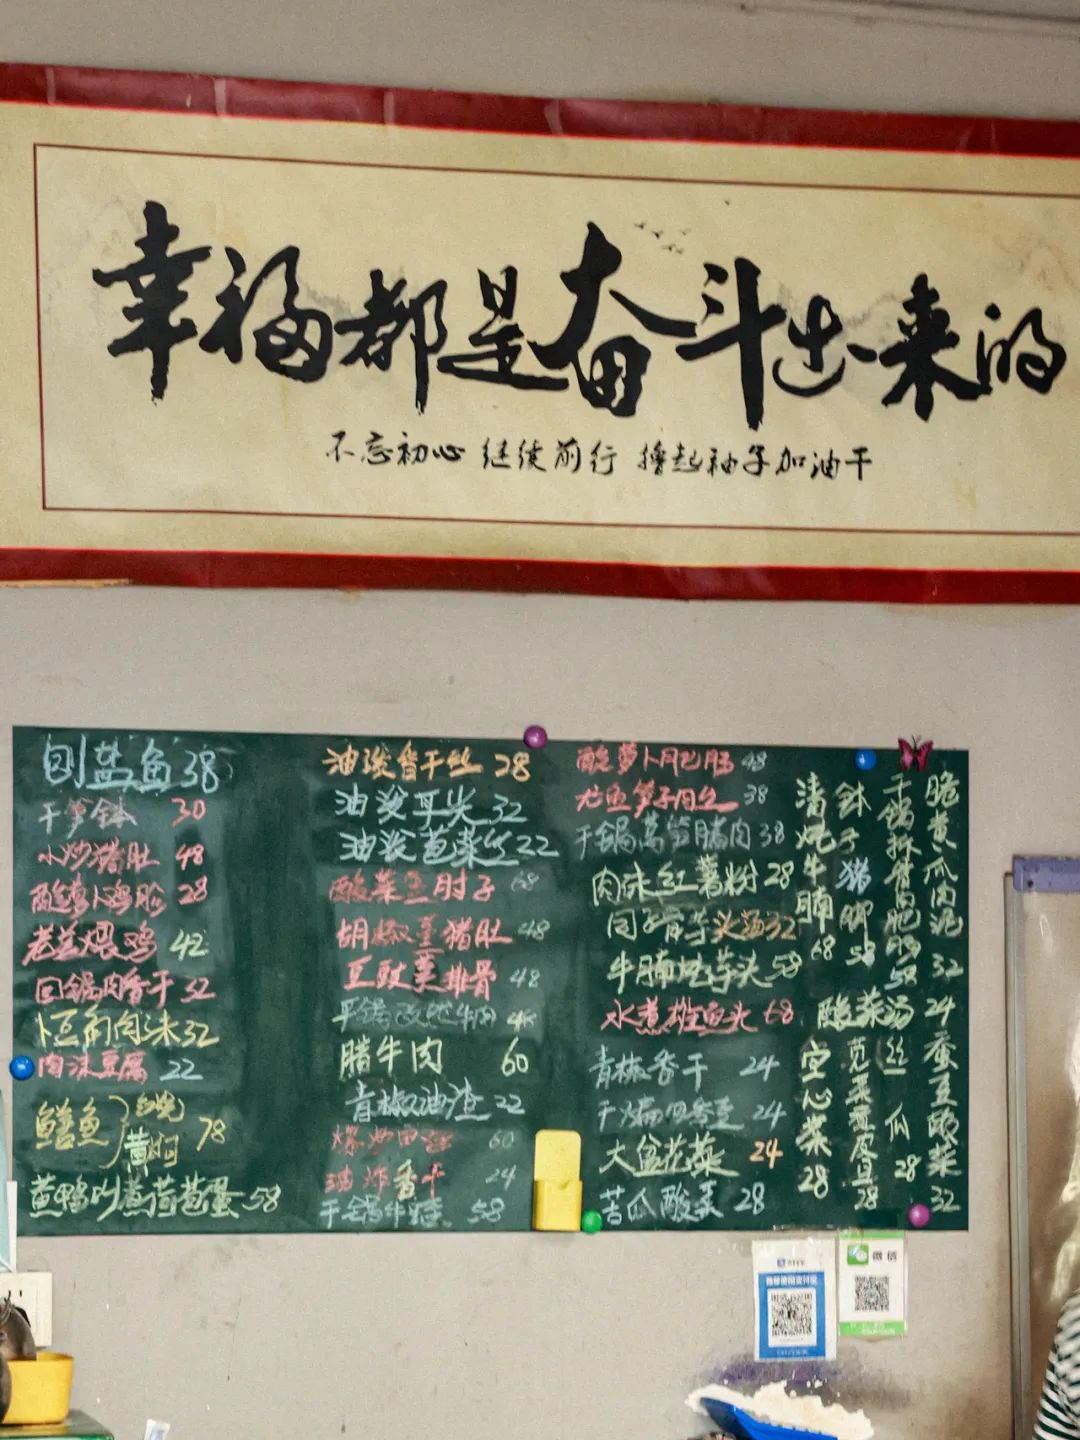 幸福都是奋斗出来的
不忘初心 继续前行 撸起袖子加油干
刨盐鱼38
干笋钵 30
小炒猪肚 48
酸萝卜鸡胗 28
老姜煨鸡 42
回锅肉香干 32
卜豆角肉沫32
肉沫豆腐 22
鳝鱼 黄焖 78
58
油淡香干丝 28
油淡耳尖 32
22
酸菜 肘子 68
胡椒 猪肚 48
豆豉 排骨 48
48
腊牛肉 60
青椒油渣 22
爆炒 60
油炸香干 24
干锅牛 58
酸萝卜 肠 48
笋子肉丝 38
干锅莴笋腊肉 38
肉沫红薯粉 28
芋头汤32
牛腩 芋头 58
水煮雄鱼头 68
青椒香干 24
干煸四季豆 24
大盆花菜 24
苦瓜酸菜 28
清炖牛腩 68
钵子猪脚 58
干锅排骨肥肠 58
脆黄瓜肉泥 32
酸菜汤 24
空心菜 28
苋菜 皮蛋 28
丝瓜 28
蚕豆酸菜 32
微信